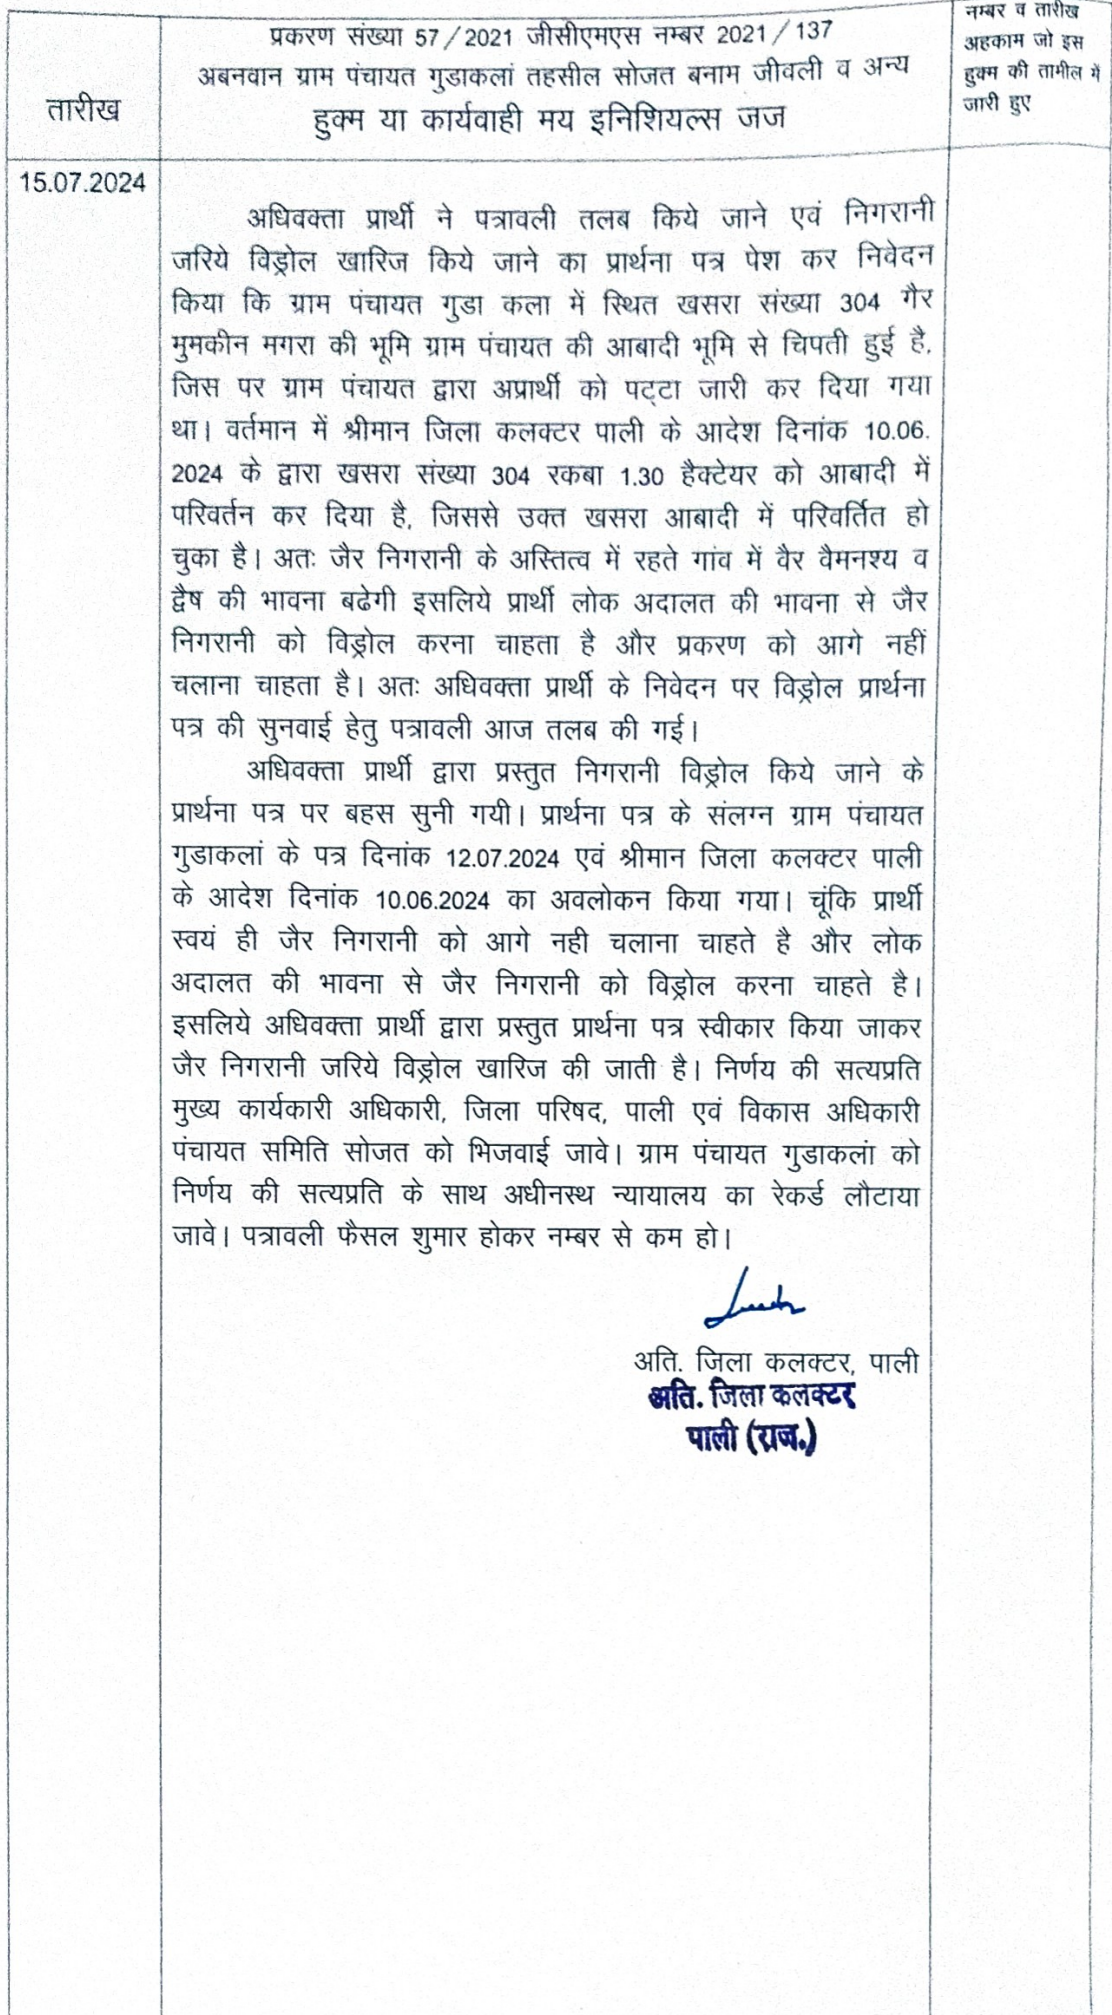 प्रकरण संख्या 57/2021 जीसीएमएस नम्बर 2021/137
अबनवान ग्राम पंचायत गुडाकलां तहसील सोजत बनाम जीवली व अन्य
हुक्म या कार्यवाही मय इनिशियल्स जज
तारीख
नम्बर व तारीख
अहकाम जो इस
हुक्म की तामील में
जारी हुए
15.07.2024
अधिवक्ता प्रार्थी ने पत्रावली तलब किये जाने एवं निगरानी
जरिये विड्रोल खारिज किये जाने का प्रार्थना पत्र पेश कर निवेदन
किया कि ग्राम पंचायत गुडा कला में स्थित खसरा संख्या 304 गैर
मुमकीन मगरा की भूमि ग्राम पंचायत की आबादी भूमि से चिपती हुई है,
जिस पर ग्राम पंचायत द्वारा अप्रार्थी को पट्टा जारी कर दिया गया
था। वर्तमान में श्रीमान जिला कलक्टर पाली के आदेश दिनांक 10.06.
2024 के द्वारा खसरा संख्या 304 रकबा 1.30 हैक्टेयर को आबादी में
परिवर्तन कर दिया है, जिससे उक्त खसरा आबादी में परिवर्तित हो
चुका है। अतः जैर निगरानी के अस्तित्व में रहते गांव में वैर वैमनश्य व
द्वैष की भावना बढेगी इसलिये प्रार्थी लोक अदालत की भावना से जैर
निगरानी को विड्रोल करना चाहता है और प्रकरण को आगे नहीं
चलाना चाहता है। अतः अधिवक्ता प्रार्थी के निवेदन पर विड्रोल प्रार्थना
पत्र की सुनवाई हेतु पत्रावली आज तलब की गई।
अधिवक्ता प्रार्थी द्वारा प्रस्तुत निगरानी विड्रोल किये जाने के
प्रार्थना पत्र पर बहस सुनी गयी। प्रार्थना पत्र के संलग्न ग्राम पंचायत
गुडाकलां के पत्र दिनांक 12.07.2024 एवं श्रीमान जिला कलक्टर पाली
के आदेश दिनांक 10.06.2024 का अवलोकन किया गया। चूंकि प्रार्थी
स्वयं ही जैर निगरानी को आगे नही चलाना चाहते है और लोक
अदालत की भावना से जैर निगरानी को विड्रोल करना चाहते है।
इसलिये अधिवक्ता प्रार्थी द्वारा प्रस्तुत प्रार्थना पत्र स्वीकार किया जाकर
जैर निगरानी जरिये विड्रोल खारिज की जाती है। निर्णय की सत्यप्रति
मुख्य कार्यकारी अधिकारी, जिला परिषद, पाली एवं विकास अधिकारी
पंचायत समिति सोजत को भिजवाई जावे। ग्राम पंचायत गुडाकलां को
निर्णय की सत्यप्रति के साथ अधीनस्थ न्यायालय का रेकर्ड लौटाया
जावे। पत्रावली फैसल शुमार होकर नम्बर से कम हो।
अति. जिला कलक्टर, पाली
अति. जिला कलक्टर
पाली (राज.)